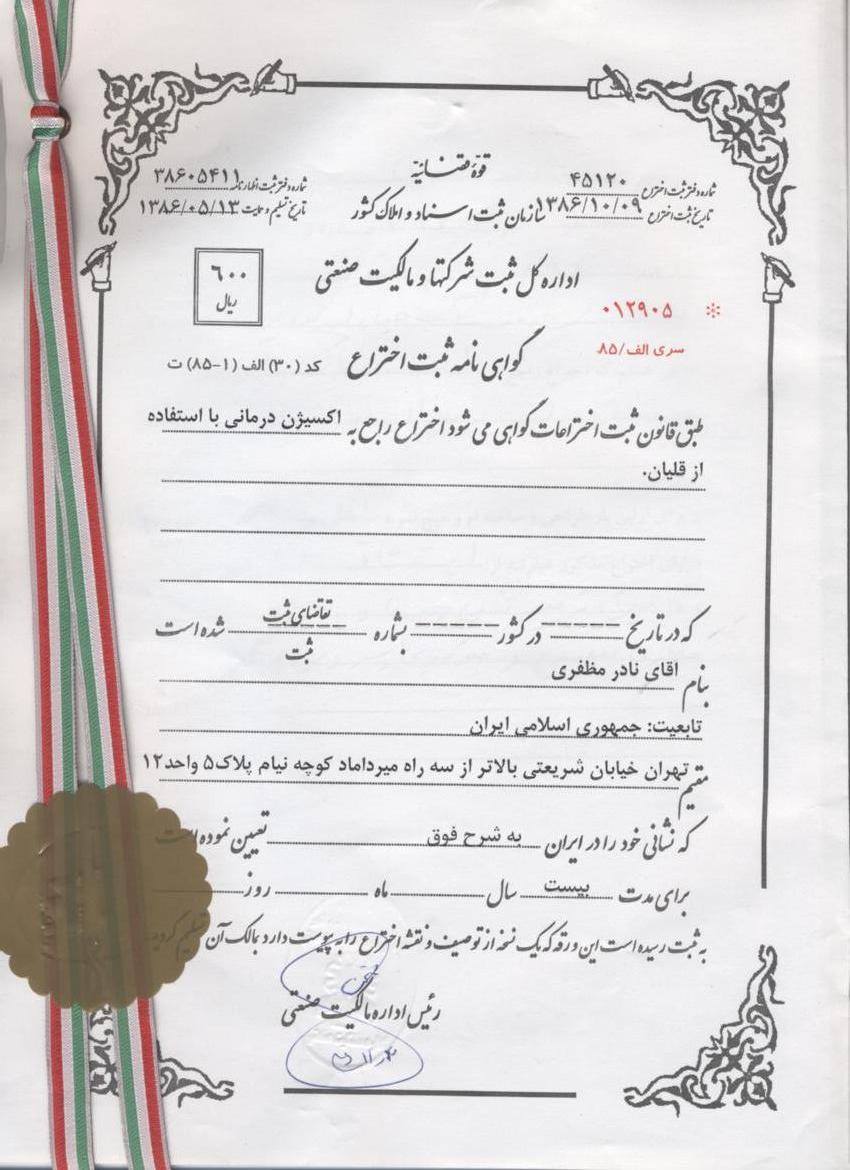 قوهٔ قضائیه
شماره دفتر ثبت اختراع ۴۵۱۲۰
شماره دفتر ثبت اظهارنامه ۳۸۶۰۵۴۱۱
تاریخ ثبت اختراع ۱۳۸۶/۱۰/۰۹
سازمان ثبت اسناد و املاک کشور
تاریخ تسلیم و حمایت ۱۳۸۶/۰۵/۱۳
اداره کل ثبت شرکتها و مالکیت صنعتی
۶۰۰
ریال
۰۱۲۹۰۵
سری الف/۸۵
گواهی نامه ثبت اختراع کد (۳۰) الف (۱-۸۵) ت
طبق قانون ثبت اختراعات گواهی می شود اختراع راجع به اکسیژن درمانی با استفاده
از قلیان.
که در تاریخ ------ در کشور ------ بشماره تقاضای ثبت شده است
ثبت
بنام اقای نادر مظفری
تابعیت: جمهوری اسلامی ایران
مقیم تهران خیابان شریعتی بالاتر از سه راه میرداماد کوچه نیام پلاک۵ واحد۱۲
که نشانی خود را در ایران به شرح فوق تعیین نموده است
برای مدت بیست سال ماه روز
به ثبت رسیده است این ورقه که یک نسخه از توصیف و نقشه اختراع را به پیوست دارد بمالک آن تسلیم گردید
رئیس اداره مالکیت صنعتی